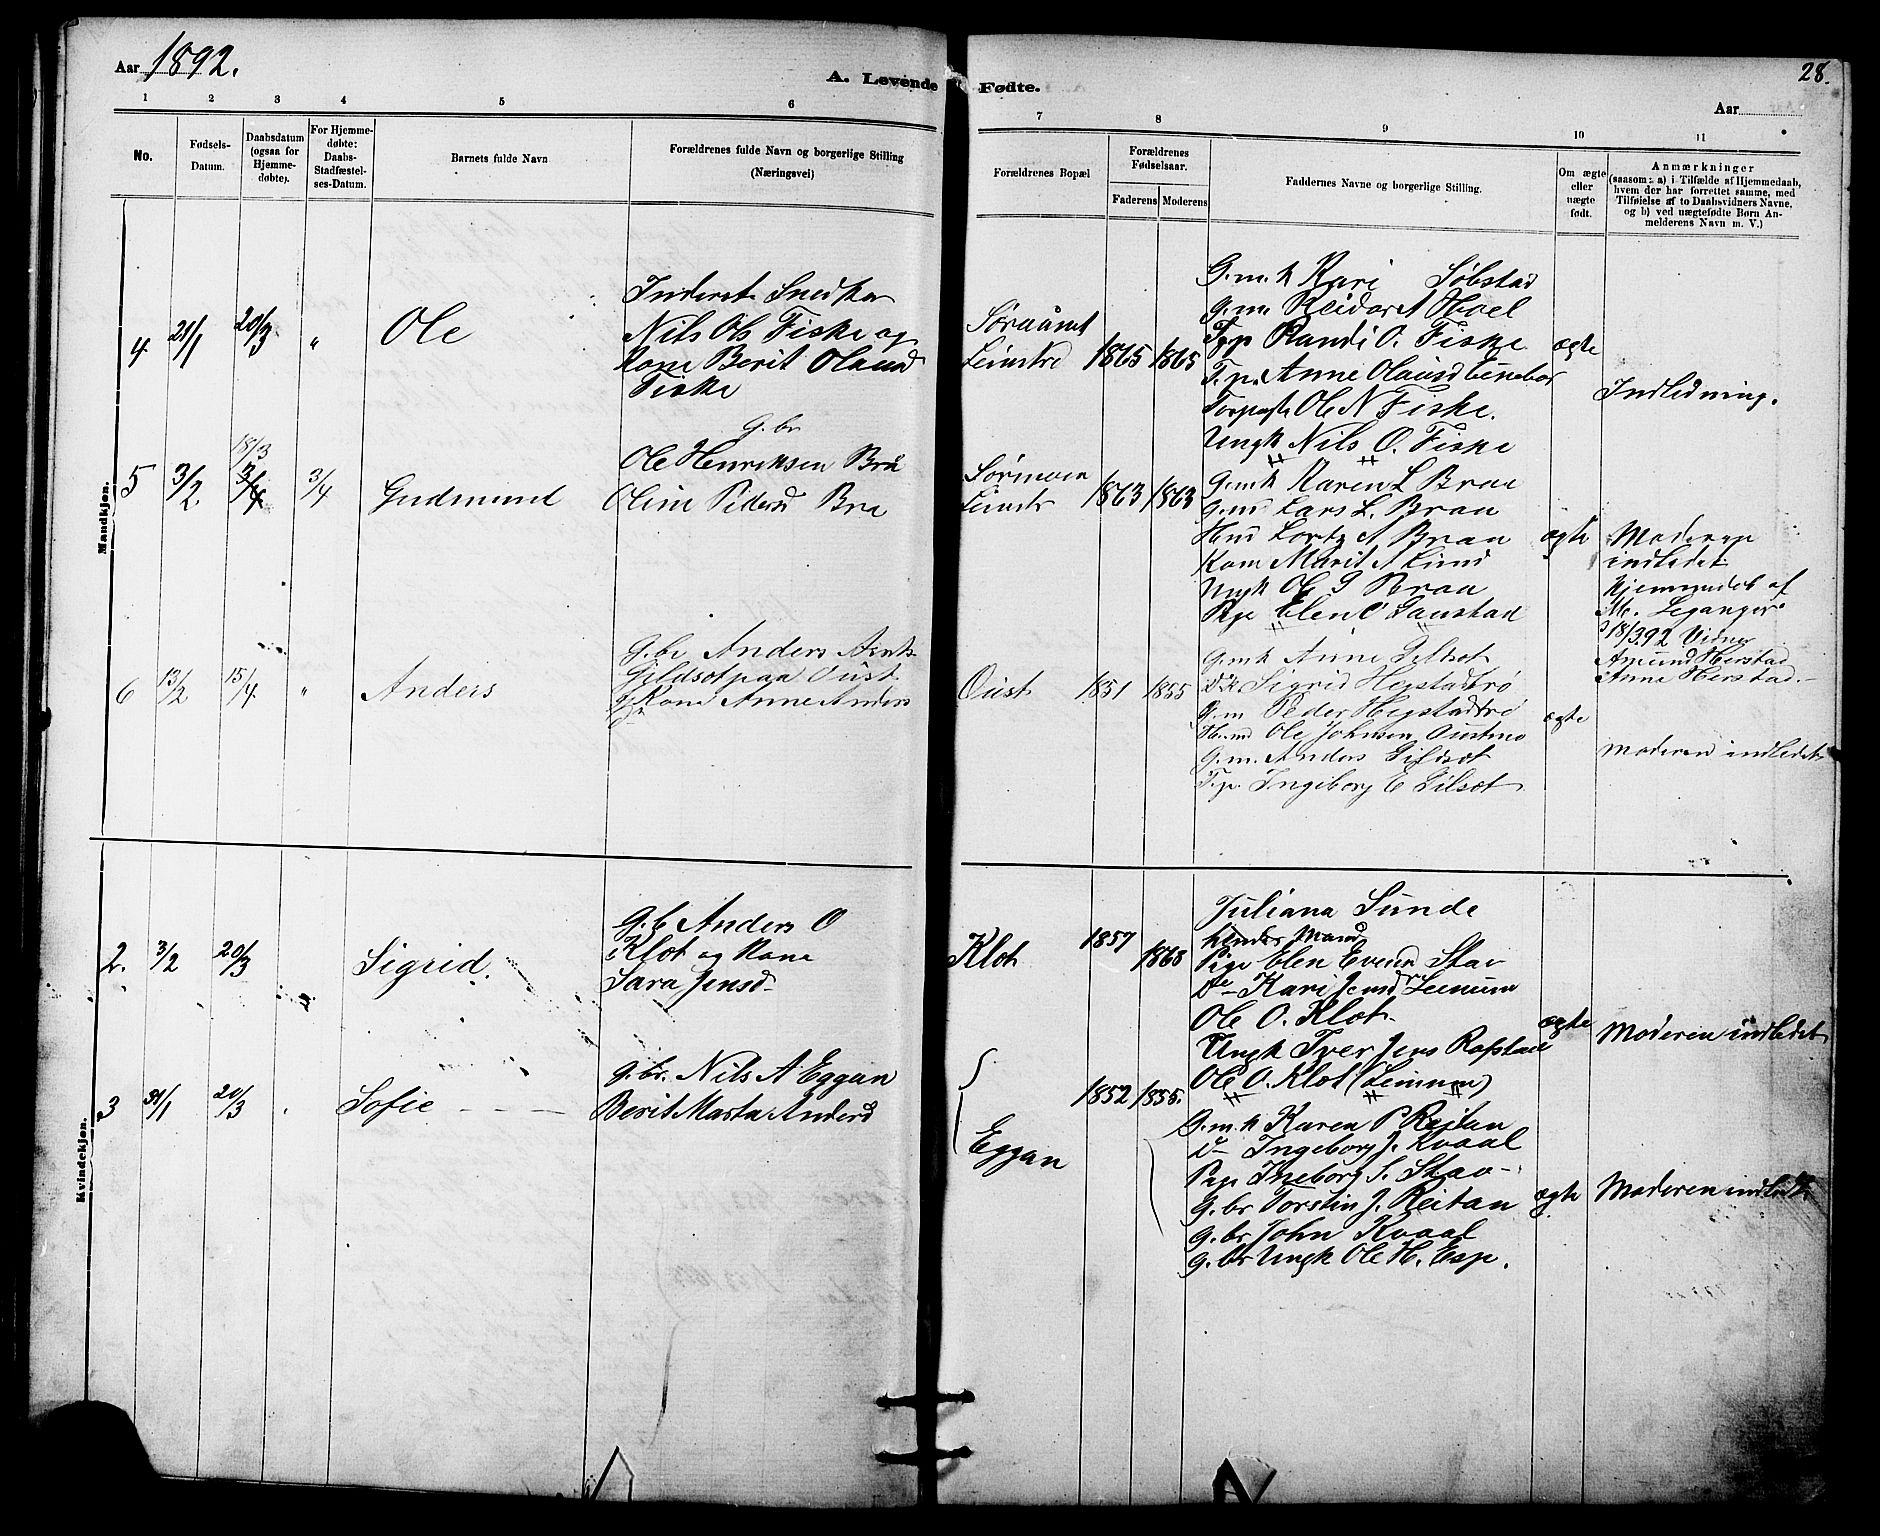 Aar 1892.
A. Levende
Fødte.
28.
Aar
1 2 3 4 5 6
7 8 9 10 11
No.
Fødsels-
Datum.
Daabsdatum
(ogsaa for
Hjemme-
døbte).
For Hjemme-
døbte:
Daabs-
Stadfæstel-
ses-Datum.
Barnets fulde Navn
Forældrenes fulde Navn og borgerlige Stilling
(Næringsvei)
Forældrenes Bopæl
Forældrenes
Fødselsaar.
Faderens Moderens
Faddernes Navne og borgerlige Stilling.
Om ægte
eller
uægte
født.
Anmærkninger
(saasom: a) i Tilfælde af Hjemmedaab,
hvem der har forrettet samme, med
Tilføielse af to Daabsvidners Navne,
og b) ved uægtefødte Børn An-
melderens Navn m. V.)
Mandkjøn.
4. 21/1 20/3 " Ole
Inderst Snedker
Nils Ols Fiske og
Kone Berit Olausd
Fiske
Leinstre 1865 1865
G.m.k Kari Søbstad
G.m. Reidar A Hoel
Randi O. Fiske
T.p. Anne Olausd
Ole N Fiske.
Ungk Nils O. Fiske
ægte
Indledning.
5 3/2 18/3 3/4 3/4 Gudmund
G.br
Ole Henriksen Bra
Oline Pedersd Bra
Sørmoen
Leinstr 1863 1863
G.m.k Karen L Braa
G.m Lars L. Braa
A Braa
Kone Marit A Lund
Ungk Ole G Braa
Pige Elen O Gaustad
ægte
Moderen
indledet
Hjemmedøbt af
Leganger
18/3 92 Vidner
Amund Herstad
Anne Herstad.
6 13/2 15/4 " Anders
G.br Anders Arnts
Gildsot paa Øust
Kone Anne Anders
Øust 1851 1855
G.m.k Anne Gildsot
Sigrid Hegstadtrø
G.m Peder Hegstadtrø
Ole Johnsen Øustmo
G.m. Anders Gildsot
T.p. Ingeborg E Gilsot
ægte
Moderen indledet
Kvindekjøn.
2. 3/2 20/3 Sigrid.
G.b Anders O
Klot og Kone
Sara Jensd
Klot 1857 1868
Juliana Sunde
hendes Mand
Pige Elen Stav
Do Kari Jensd
Ole O. Klot
Ungk Iver Jens
Ole O. Klot
ægte
Moderen indledet
3 31/1 20/3 Sofie
G.br. Nils A Eggan
Berit Marta Andersd
Eggan
1852 1855.
G.m.k Karen P Reitan
Do Ingeborg J. Kvaal
Pige Ingeborg S. Stav
G.br Torstin J. Reitan
G.br John Kvaal
G.br Ungk Ole H. Esp.
ægte
Moderen indledt